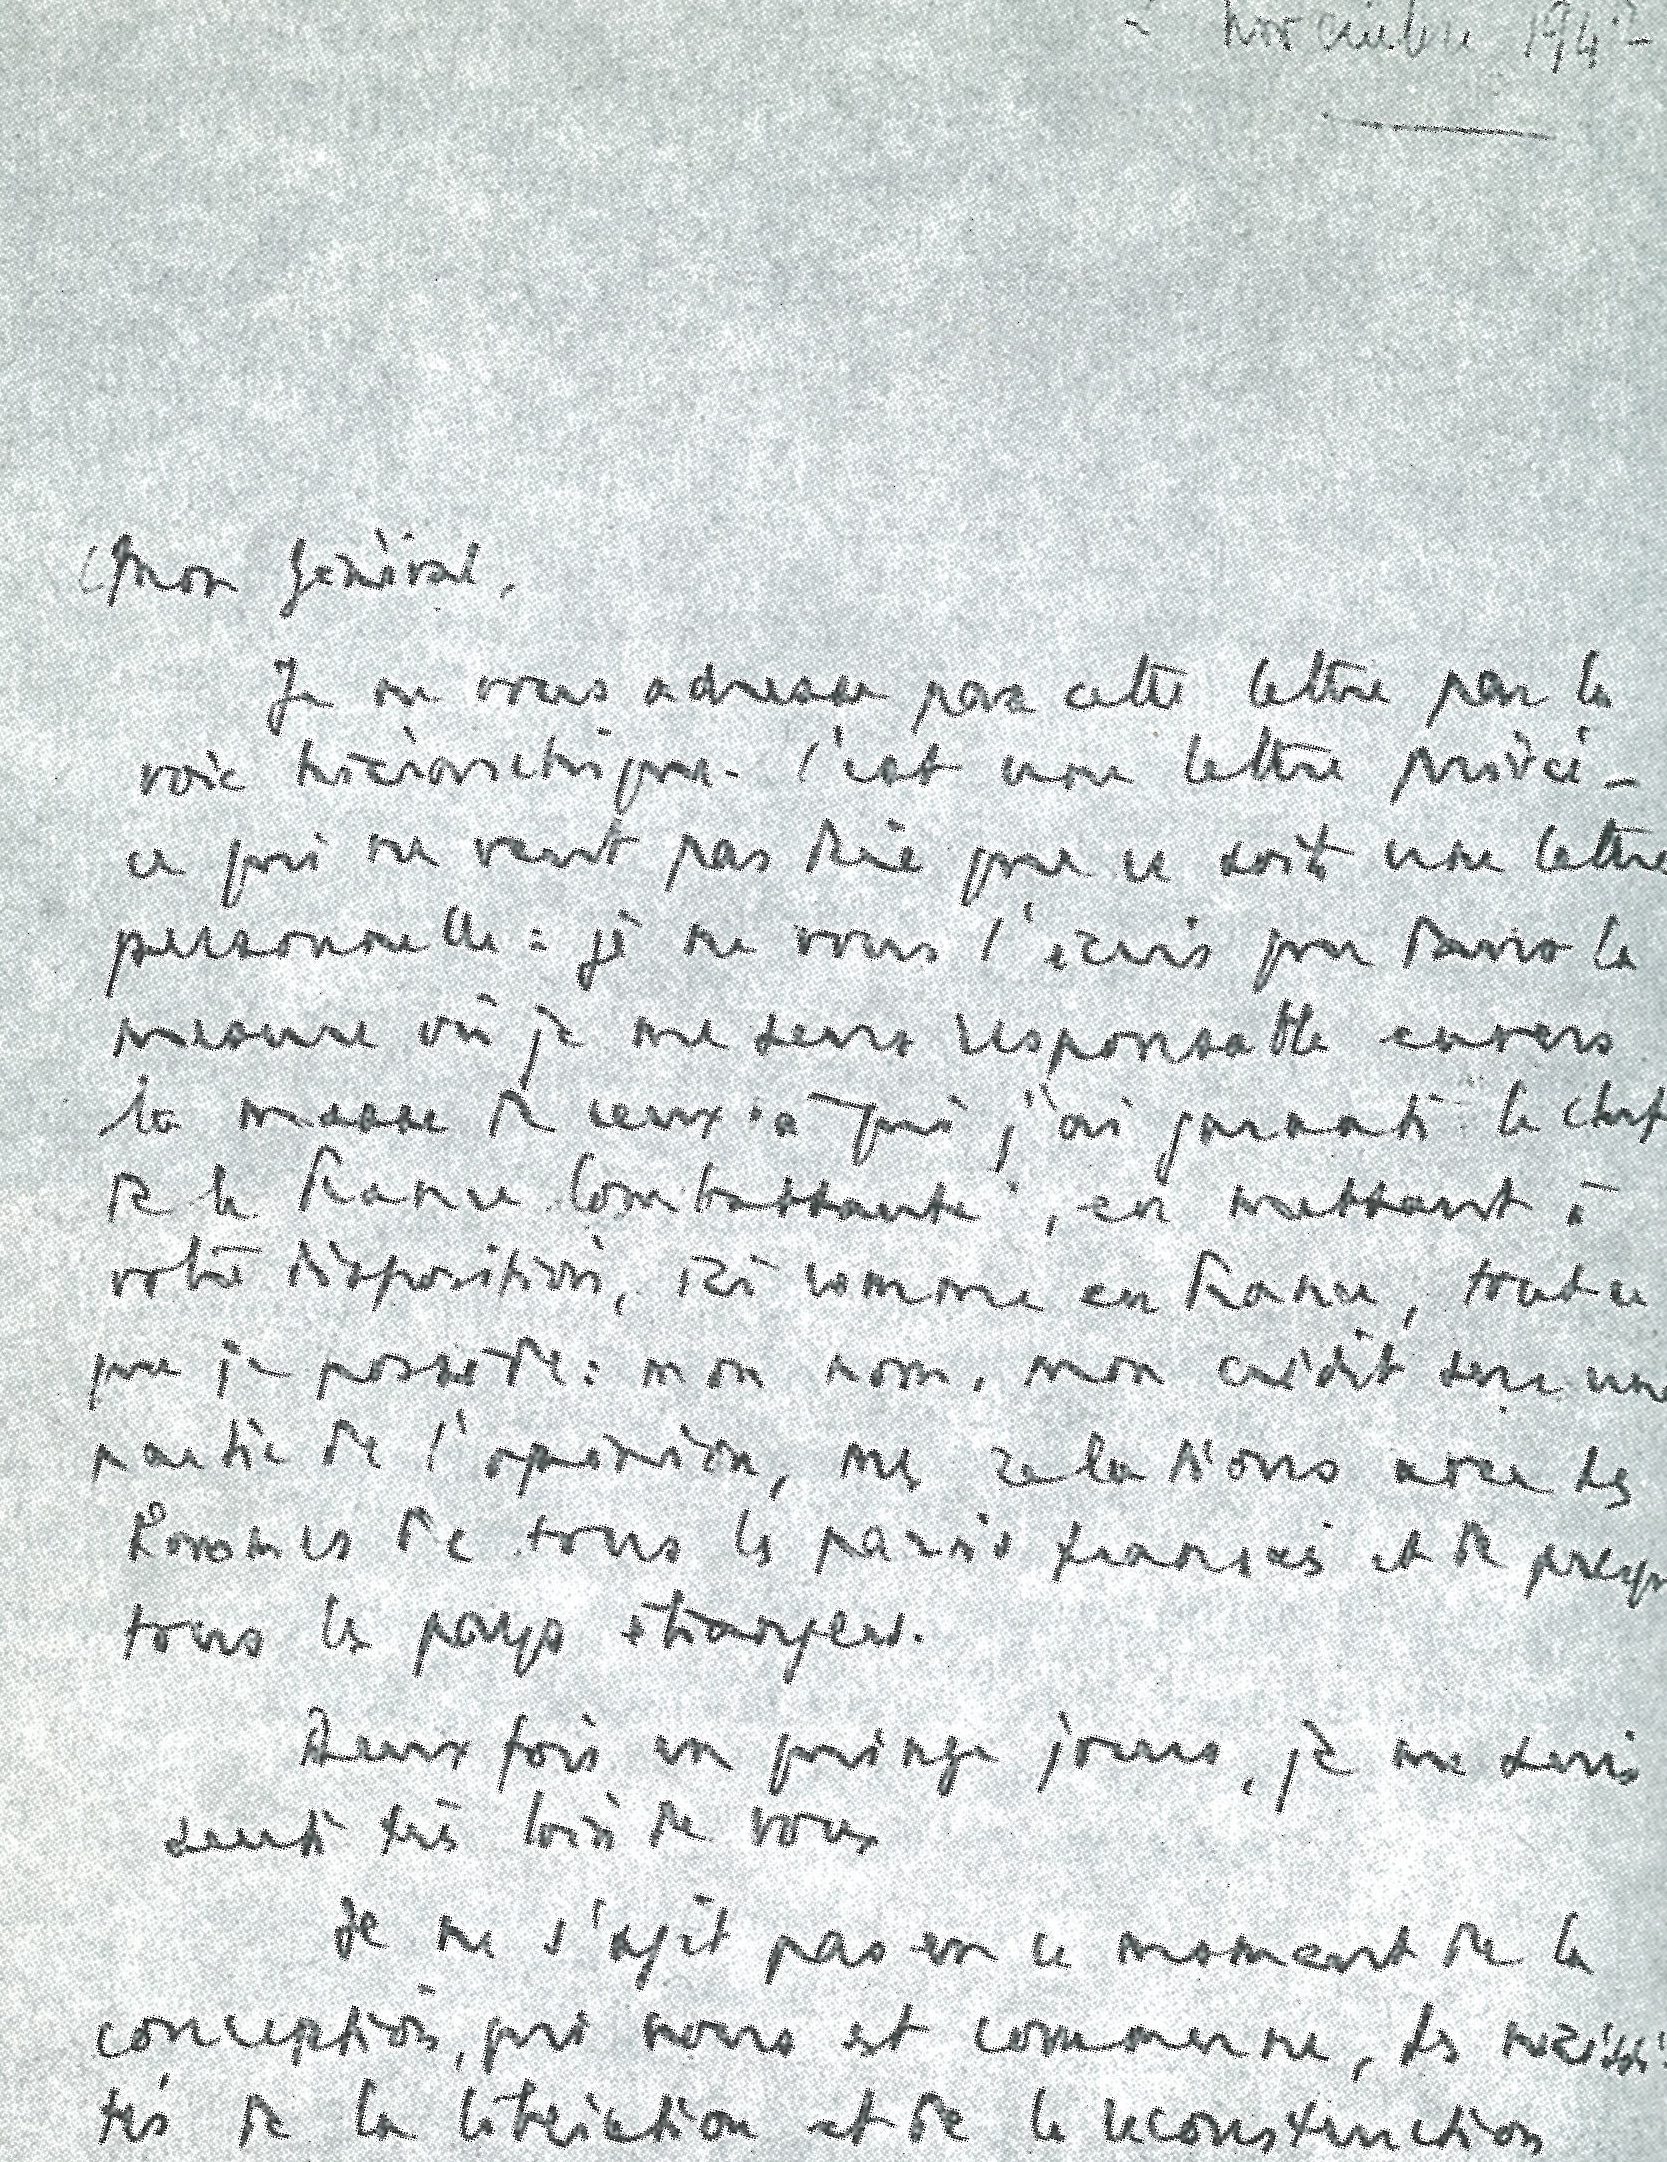 novembre 194
Mon Général,
Je ne vous adresse pas cette lettre par la
voie hiérarchique. C'est une lettre privée -
ce qui ne veut pas dire que ce soit une lettre
personnelle : je ne vous l'écris que dans la
mesure où je me sens responsable envers
la masse de ceux à qui j'ai garanti le chef
de la France Combattante, en mettant à
votre disposition, ici comme en France, tout ce
que je possède : mon nom, mon crédit sur une
partie de l'opinion, mes relations avec des
hommes de tous les partis français et de presqu
tous les pays étrangers.
Deux fois en quinze jours, je me suis
senti très loin de vous
Je ne s'agit pas en ce moment de la
conception, qui nous est commune, des nécessi-
tés de la libération et de la reconstruction